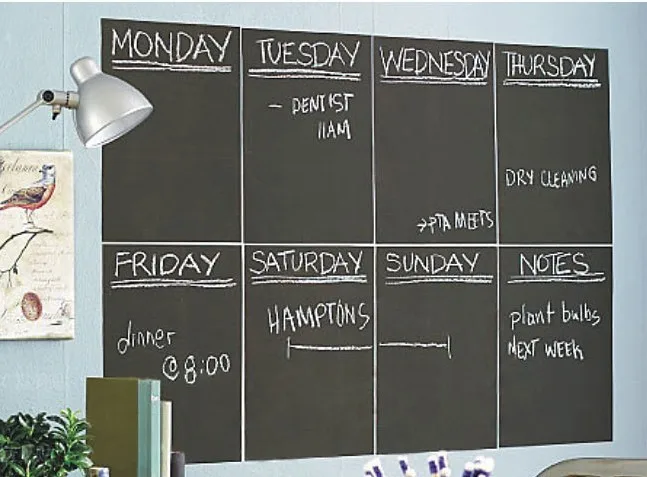 MONDAY
TUESDAY
- DENTIST
11AM
WEDNESDAY
→PTA MEETS
THURSDAY
DRY CLEANING
FRIDAY
dinner
@ 8:00
SATURDAY
HAMPTONS
SUNDAY
NOTES
plant bulbs
NEXT WEEK